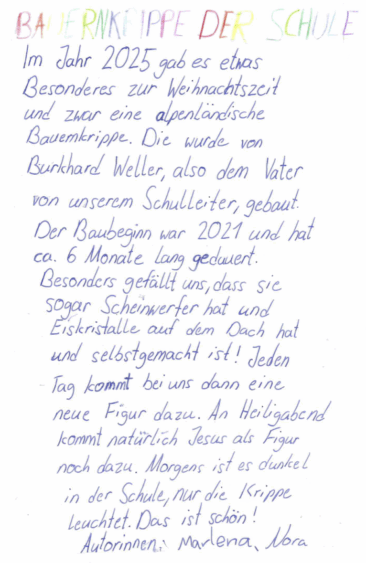 BAUERNKRIPPE DER SCHULE
Im Jahr 2025 gab es etwas
Besonderes zur Weihnachtszeit
und zwar eine alpenländische
Bauernkrippe. Die wurde von
Burkhard Weller, also dem Vater
von unserem Schulleiter, gebaut.
Der Baubeginn war 2021 und hat
ca. 6 Monate lang gedauert.
Besonders gefällt uns, dass sie
sogar Scheinwerfer hat und
Eiskristalle auf dem Dach hat
und selbstgemacht ist! Jeden
Tag kommt bei uns dann eine
neue Figur dazu. An Heiligabend
kommt natürlich Jesus als Figur
noch dazu. Morgens ist es dunkel
in der Schule, nur die Krippe
leuchtet. Das ist schön!
Autorinnen: Marlena, Nora